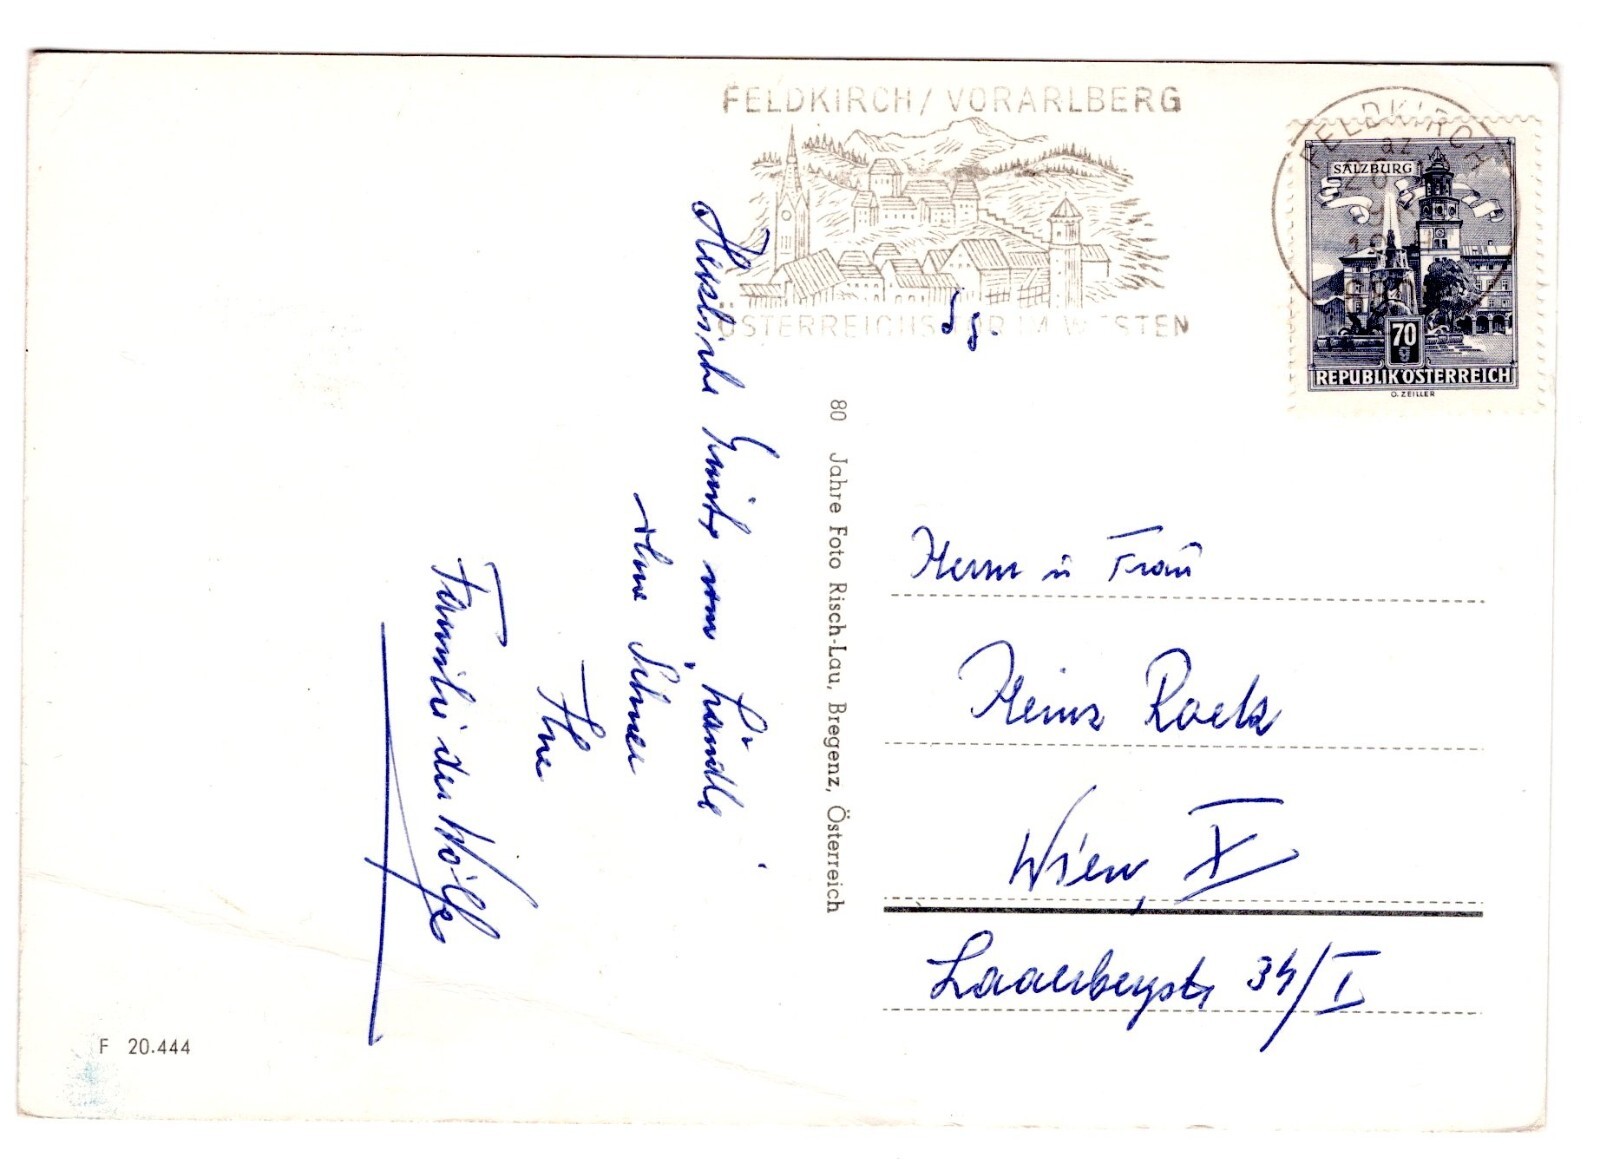 FELDKIRCH / VORARLBERG
ÖSTERREICHS TOR IM WESTEN
FELDKIRCH
SALZBURG
70
g
REPUBLIK ÖSTERREICH
O. ZEILLER
Herzliche Grüße vom Ländle
ohne Schnee
Ihre
Familie der Wölfe
80 Jahre Foto Risch-Lau, Bregenz, Österreich
Herrn u Frau
Heinz
Wien, X
Laaerbergstr 34/I
F 20.444